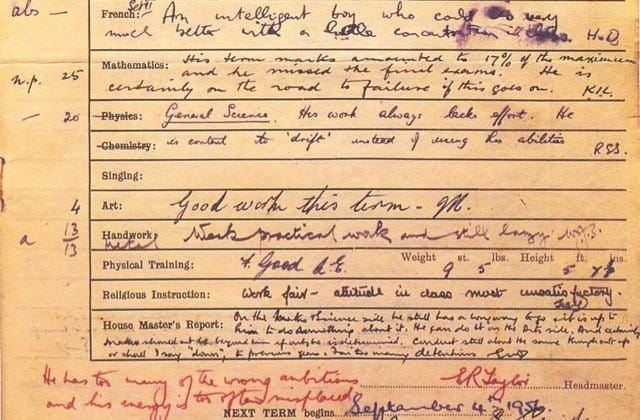 abs — French: Set II An intelligent boy who could do very
much better with a little concentration in class. H.D
Mathematics: His term marks amounted to 17% of the maximum
n.p. 25 and he missed the final exams. He is
certainly on the road to failure if this goes on. K.I.L.
— 20 Physics: General Science. His work always lacks effort. He
Chemistry: is content to 'drift' instead of using his abilities RSS.
Singing:
4 Art: Good work this term -
a 13/13 Handwork: Metal Weak practical work and still lazy
Physical Training: F. Good Weight 9 st. 5 lbs. Height 5 7½ ins.
Religious Instruction: Work fair - attitude in class most unsatisfactory.
House Master's Report: On the he still has a long way to go still is up to
him to do something about it. He can do it on the Arts side. And certainly
should not be beyond him if only he is determined. Conduct still about the same though up
or shall I say "down", to previous years. Far too many detentions
He has too many of the wrong ambitions
ER Taylor Headmaster.
and his energy is too often misplaced
NEXT TERM begins September 4th 1956